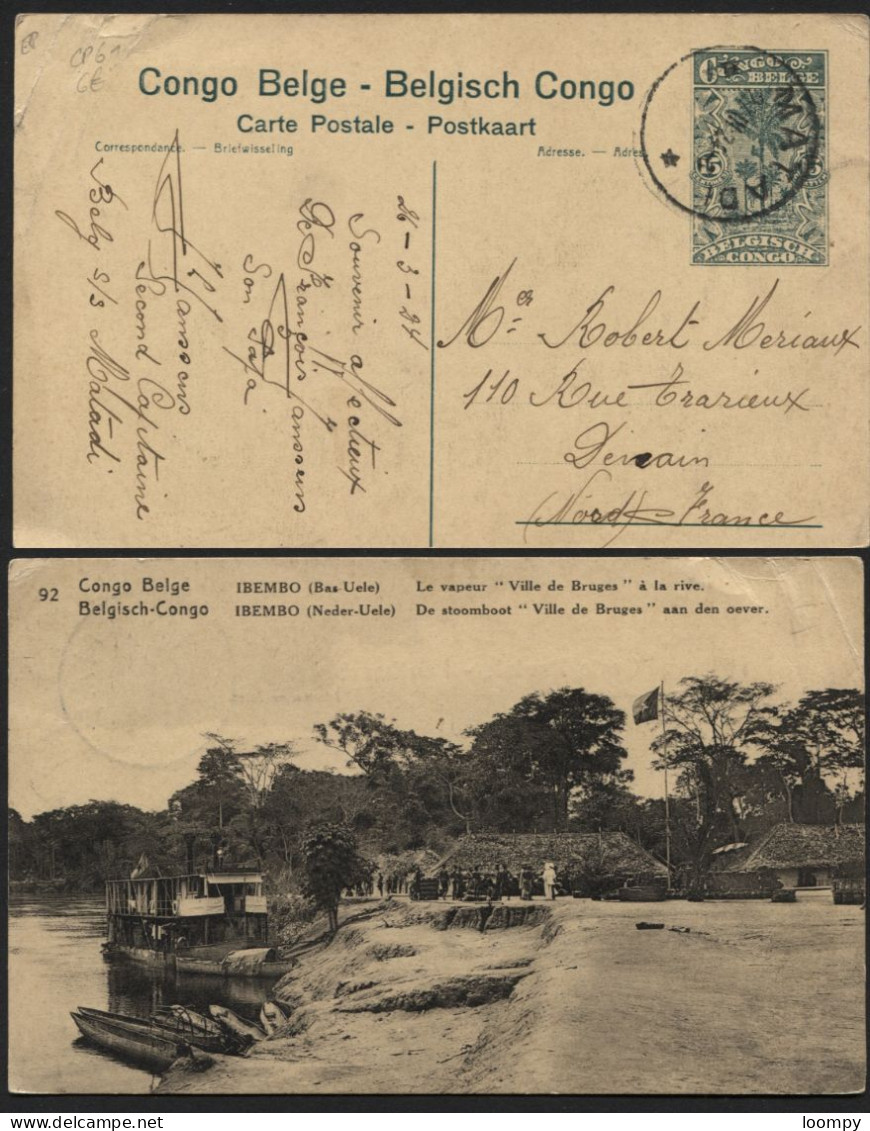 CP61
Congo Belge - Belgisch Congo
Carte Postale - Postkaart
Correspondance. — Briefwisseling
Adresse. — Adres
CONGO BELGE
MATADI
5
5
BELGISCH
CONGO
26-3-24
Souvenir affectueux
De François Janssens
Son Papa
Janssens
Second Capitaine
Belg S/S Matadi
Mr Robert Meriaux
110 Rue Trarieux
Denain
(Nord) France
92
Congo Belge
Belgisch-Congo
IBEMBO (Bas-Uele) Le vapeur "Ville de Bruges" à la rive.
IBEMBO (Neder-Uele) De stoomboot "Ville de Bruges" aan den oever.
loompy